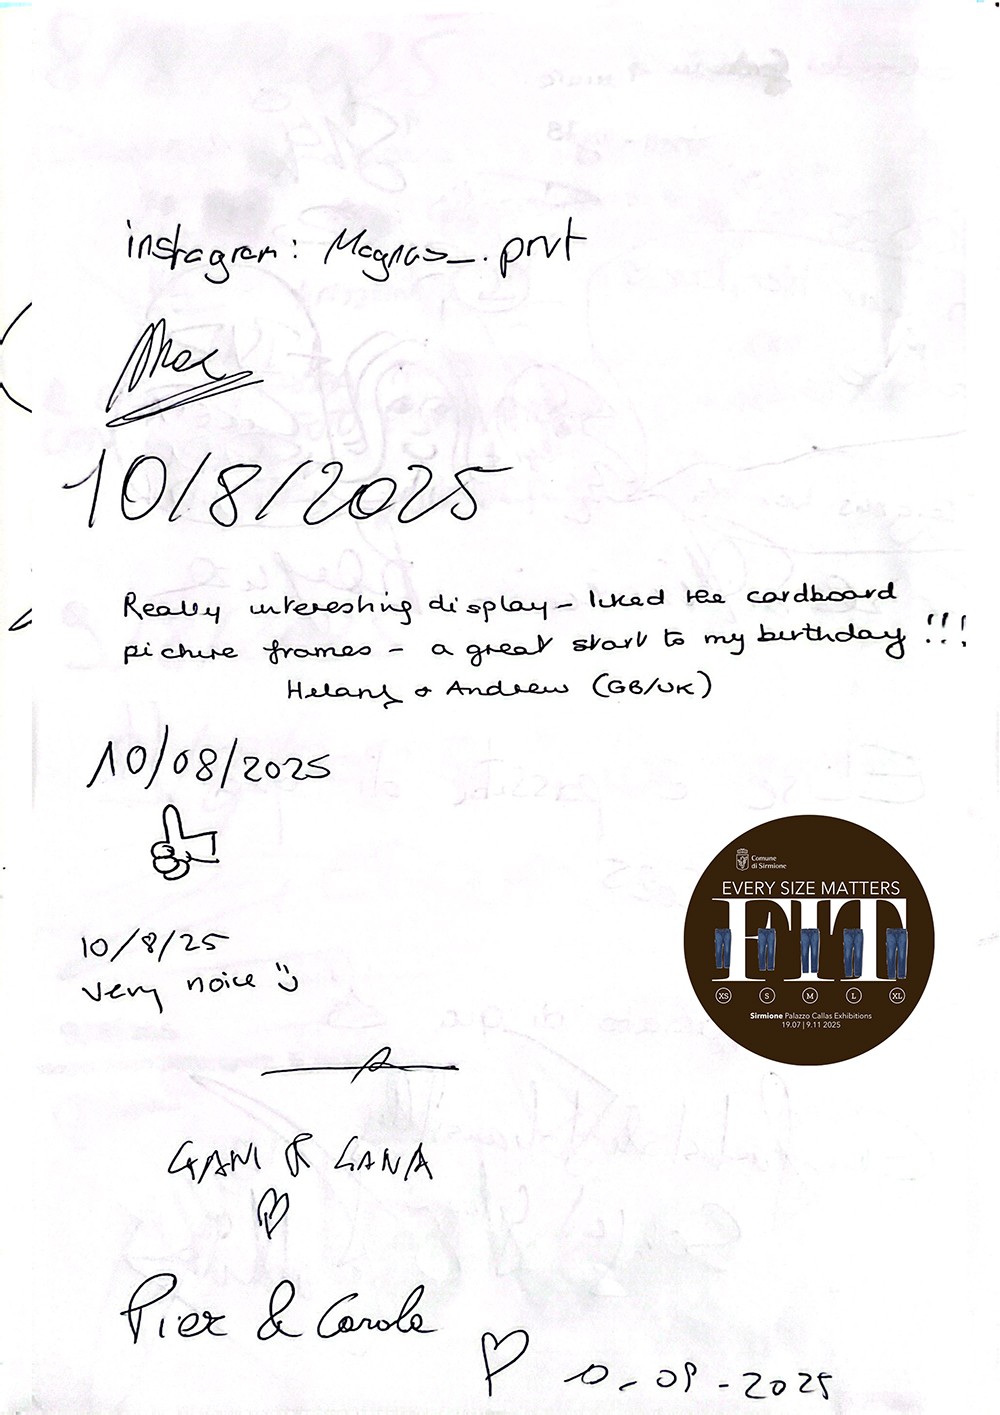 instagram: Magnus_.prvt
10/8/2025
Really interesting display - liked the cardboard
picture frames - a great start to my birthday !!!
& Andrew (GB/UK)
10/08/2025
10/8/25
very noice :)
GANI & GANA
Pier & Carola
10-08-2025
Comune
di Sirmione
EVERY SIZE MATTERS
FIT
XS S M L XL
Sirmione Palazzo Callas Exhibitions
19.07 | 9.11 2025